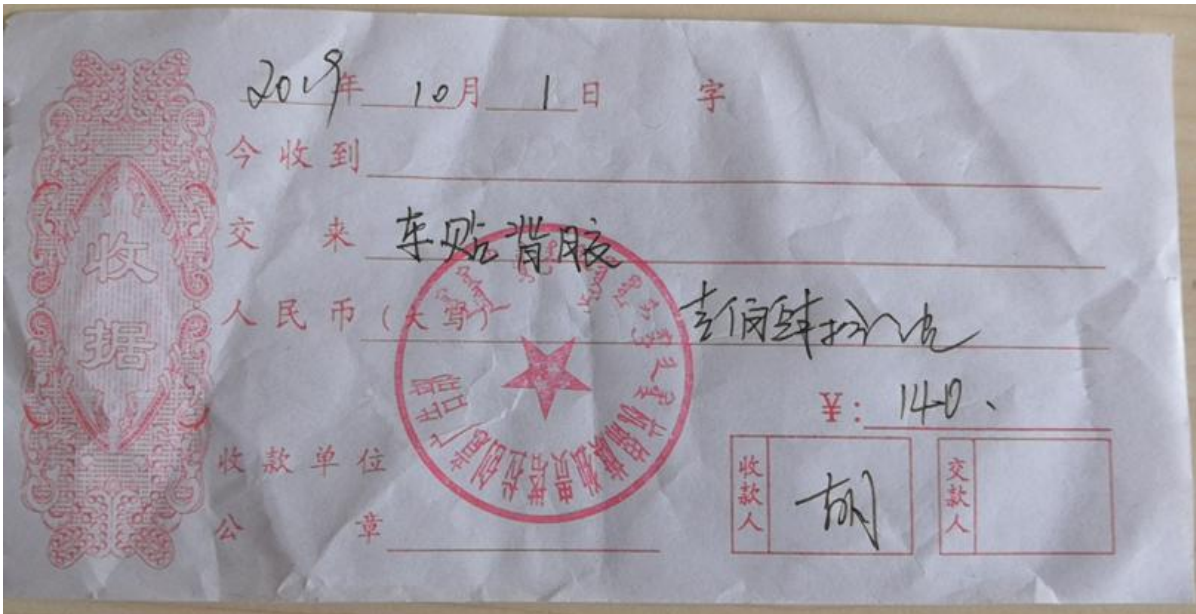 2019年 10月 1日 字
今收到
交来 车贴背胶
人民币(大写) 壹佰肆拾元
¥: 140、
收款单位
公章
收款人 胡
交款人
收据